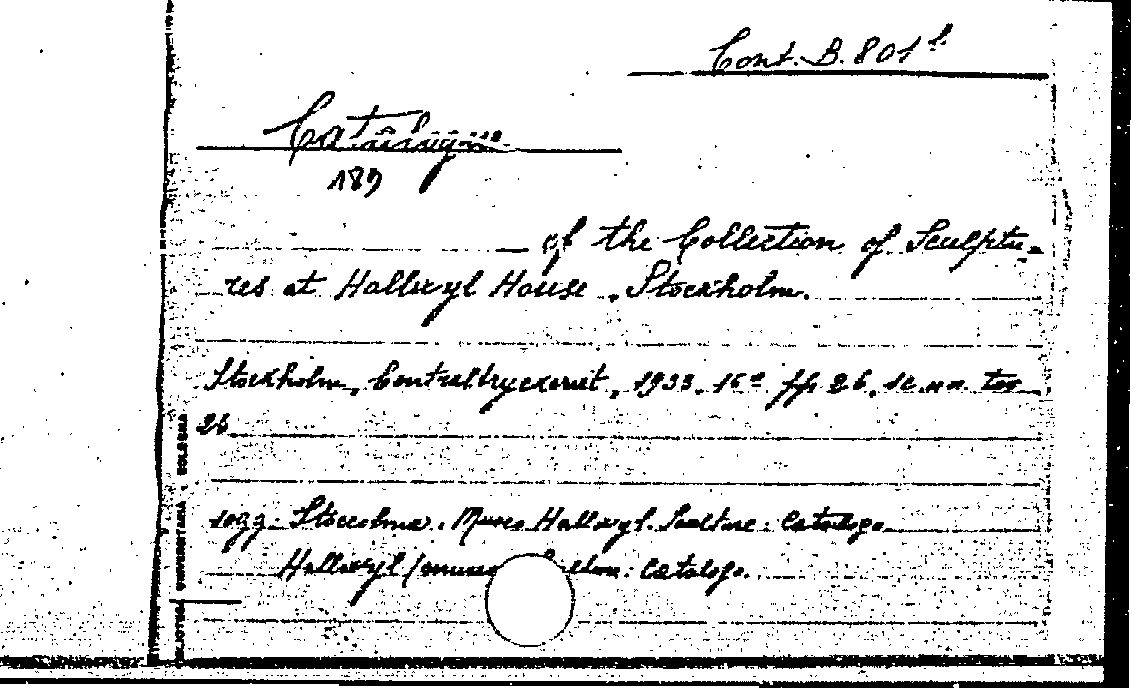 Cont. B. 801 b
Catalogue
189
of the Collection of Sculptu-
res at Hallwyl House, Stockholm.
Stockholm, Centraltryckeriet, 1933. 16° pp 26.
26
sogg. Stoccolma. Museo Hallwyl. Sculture: Catalogo
Hallwyl Catalogo.
BIBLIOTECA UNIVERSITARIA BOLOGNA